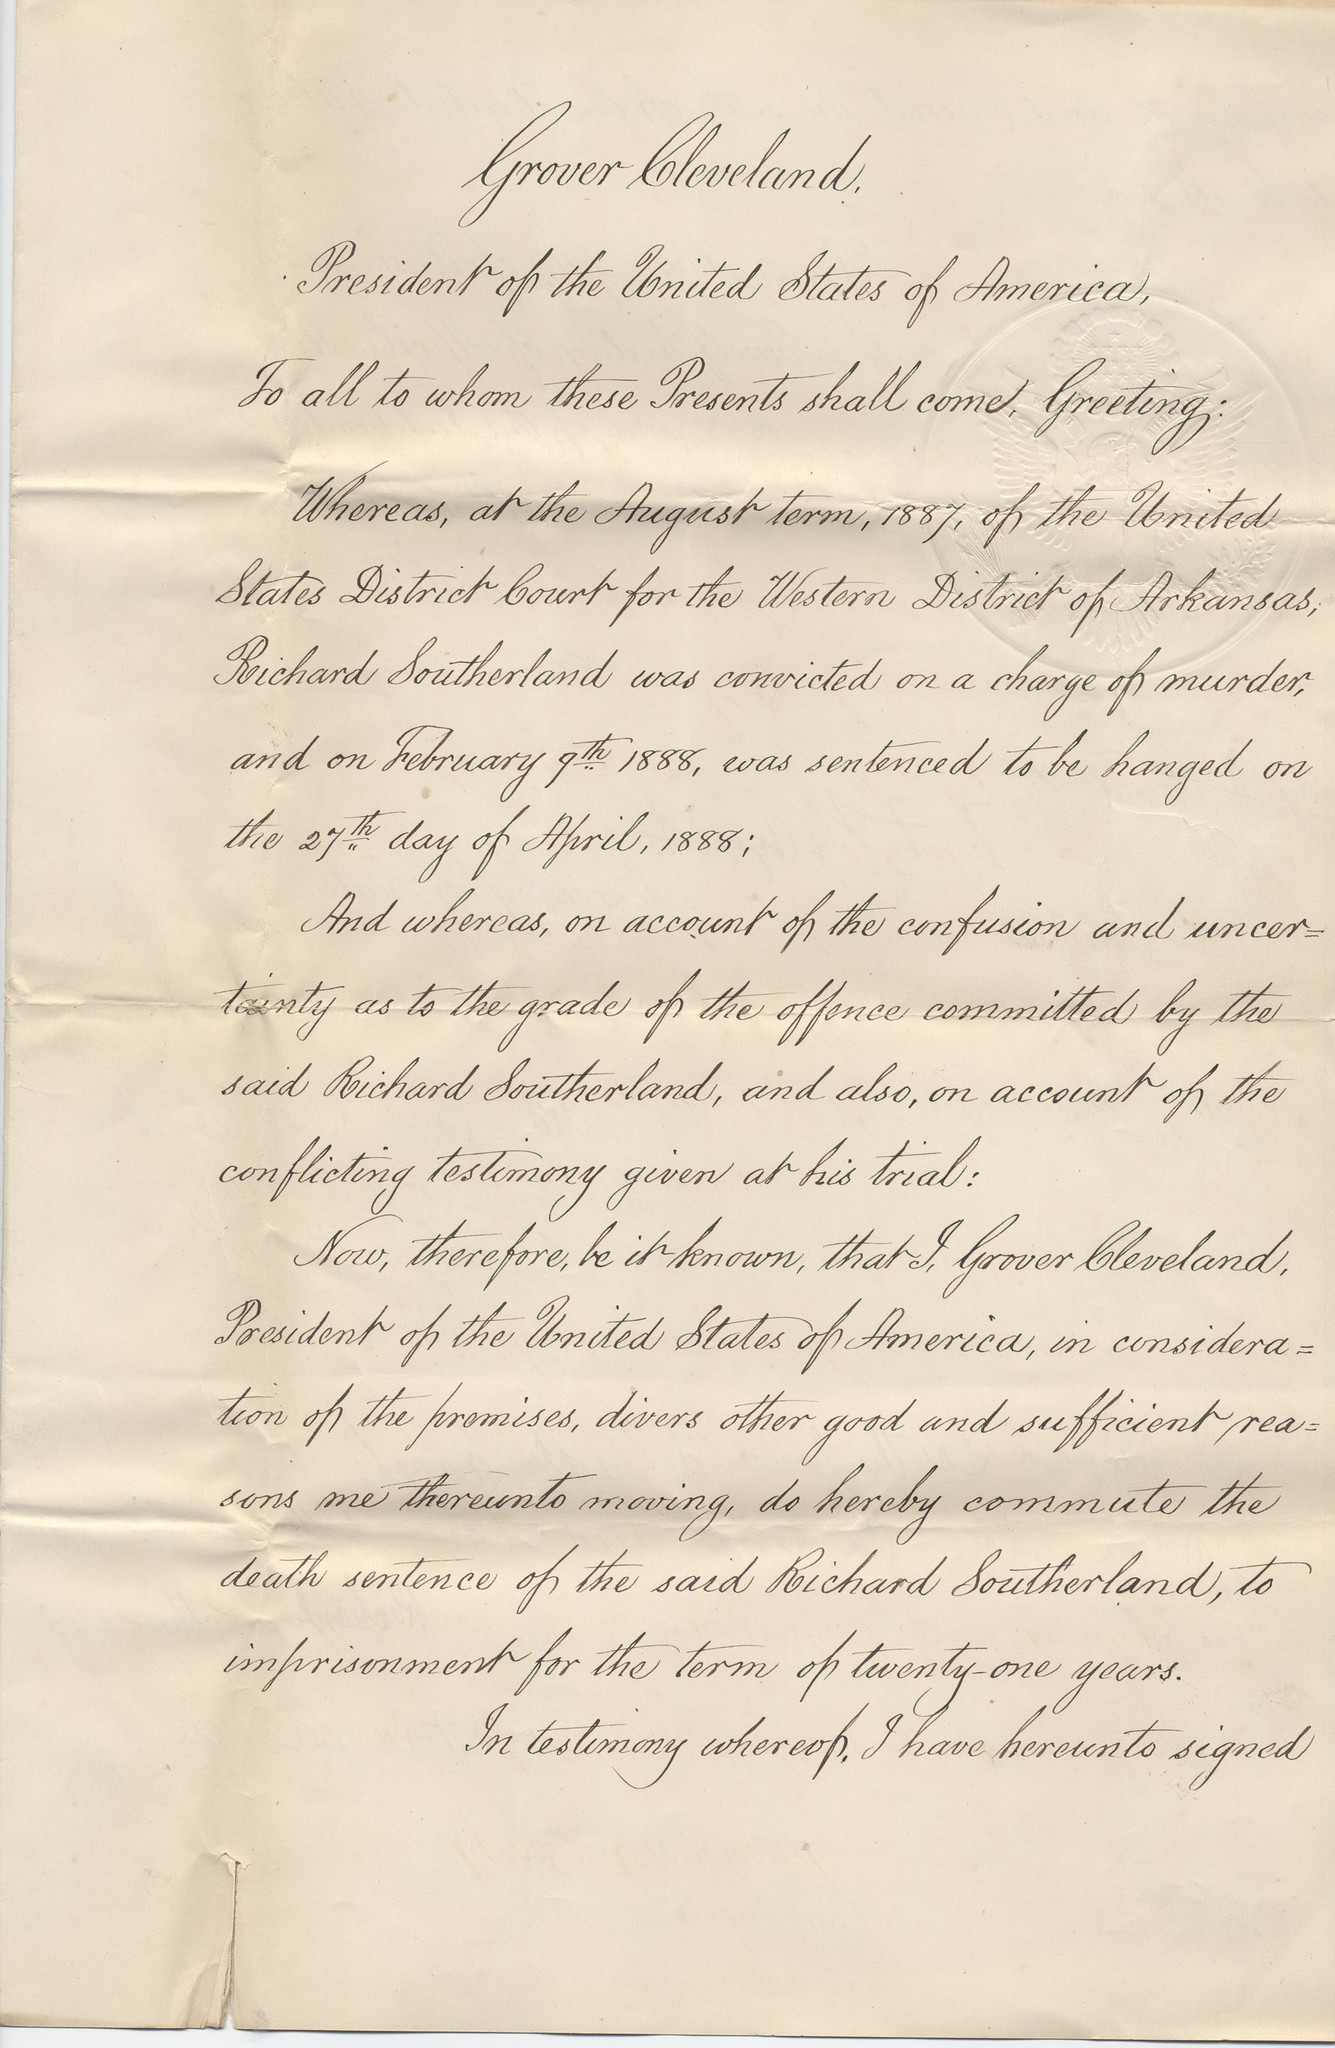 Grover Cleveland.
President of the United States of America,
To all to whom these Presents shall come, Greeting:
Whereas, at the August term, 1887, of the United
States District Court for the Western District of Arkansas,
Richard Southerland was convicted on a charge of murder,
and on February 9th 1888, was sentenced to be hanged on
the 27th day of April, 1888;
And whereas, on account of the confusion and uncer=
tainty as to the grade of the offence committed by the
said Richard Southerland, and also, on account of the
conflicting testimony given at his trial:
Now, therefore, be it known, that I, Grover Cleveland,
President of the United States of America, in considera=
tion of the premises, divers other good and sufficient rea=
sons me thereunto moving, do hereby commute the
death sentence of the said Richard Southerland, to
imprisonment for the term of twenty-one years.
In testimony whereof, I have hereunto signed